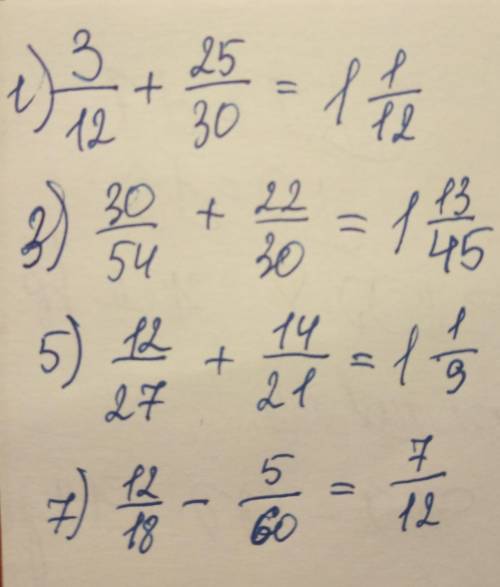 1) 3/12 + 25/30 = 1 1/12
3) 30/54 + 22/30 = 1 13/45
5) 12/27 + 14/21 = 1 1/9
7) 12/18 - 5/60 = 7/12